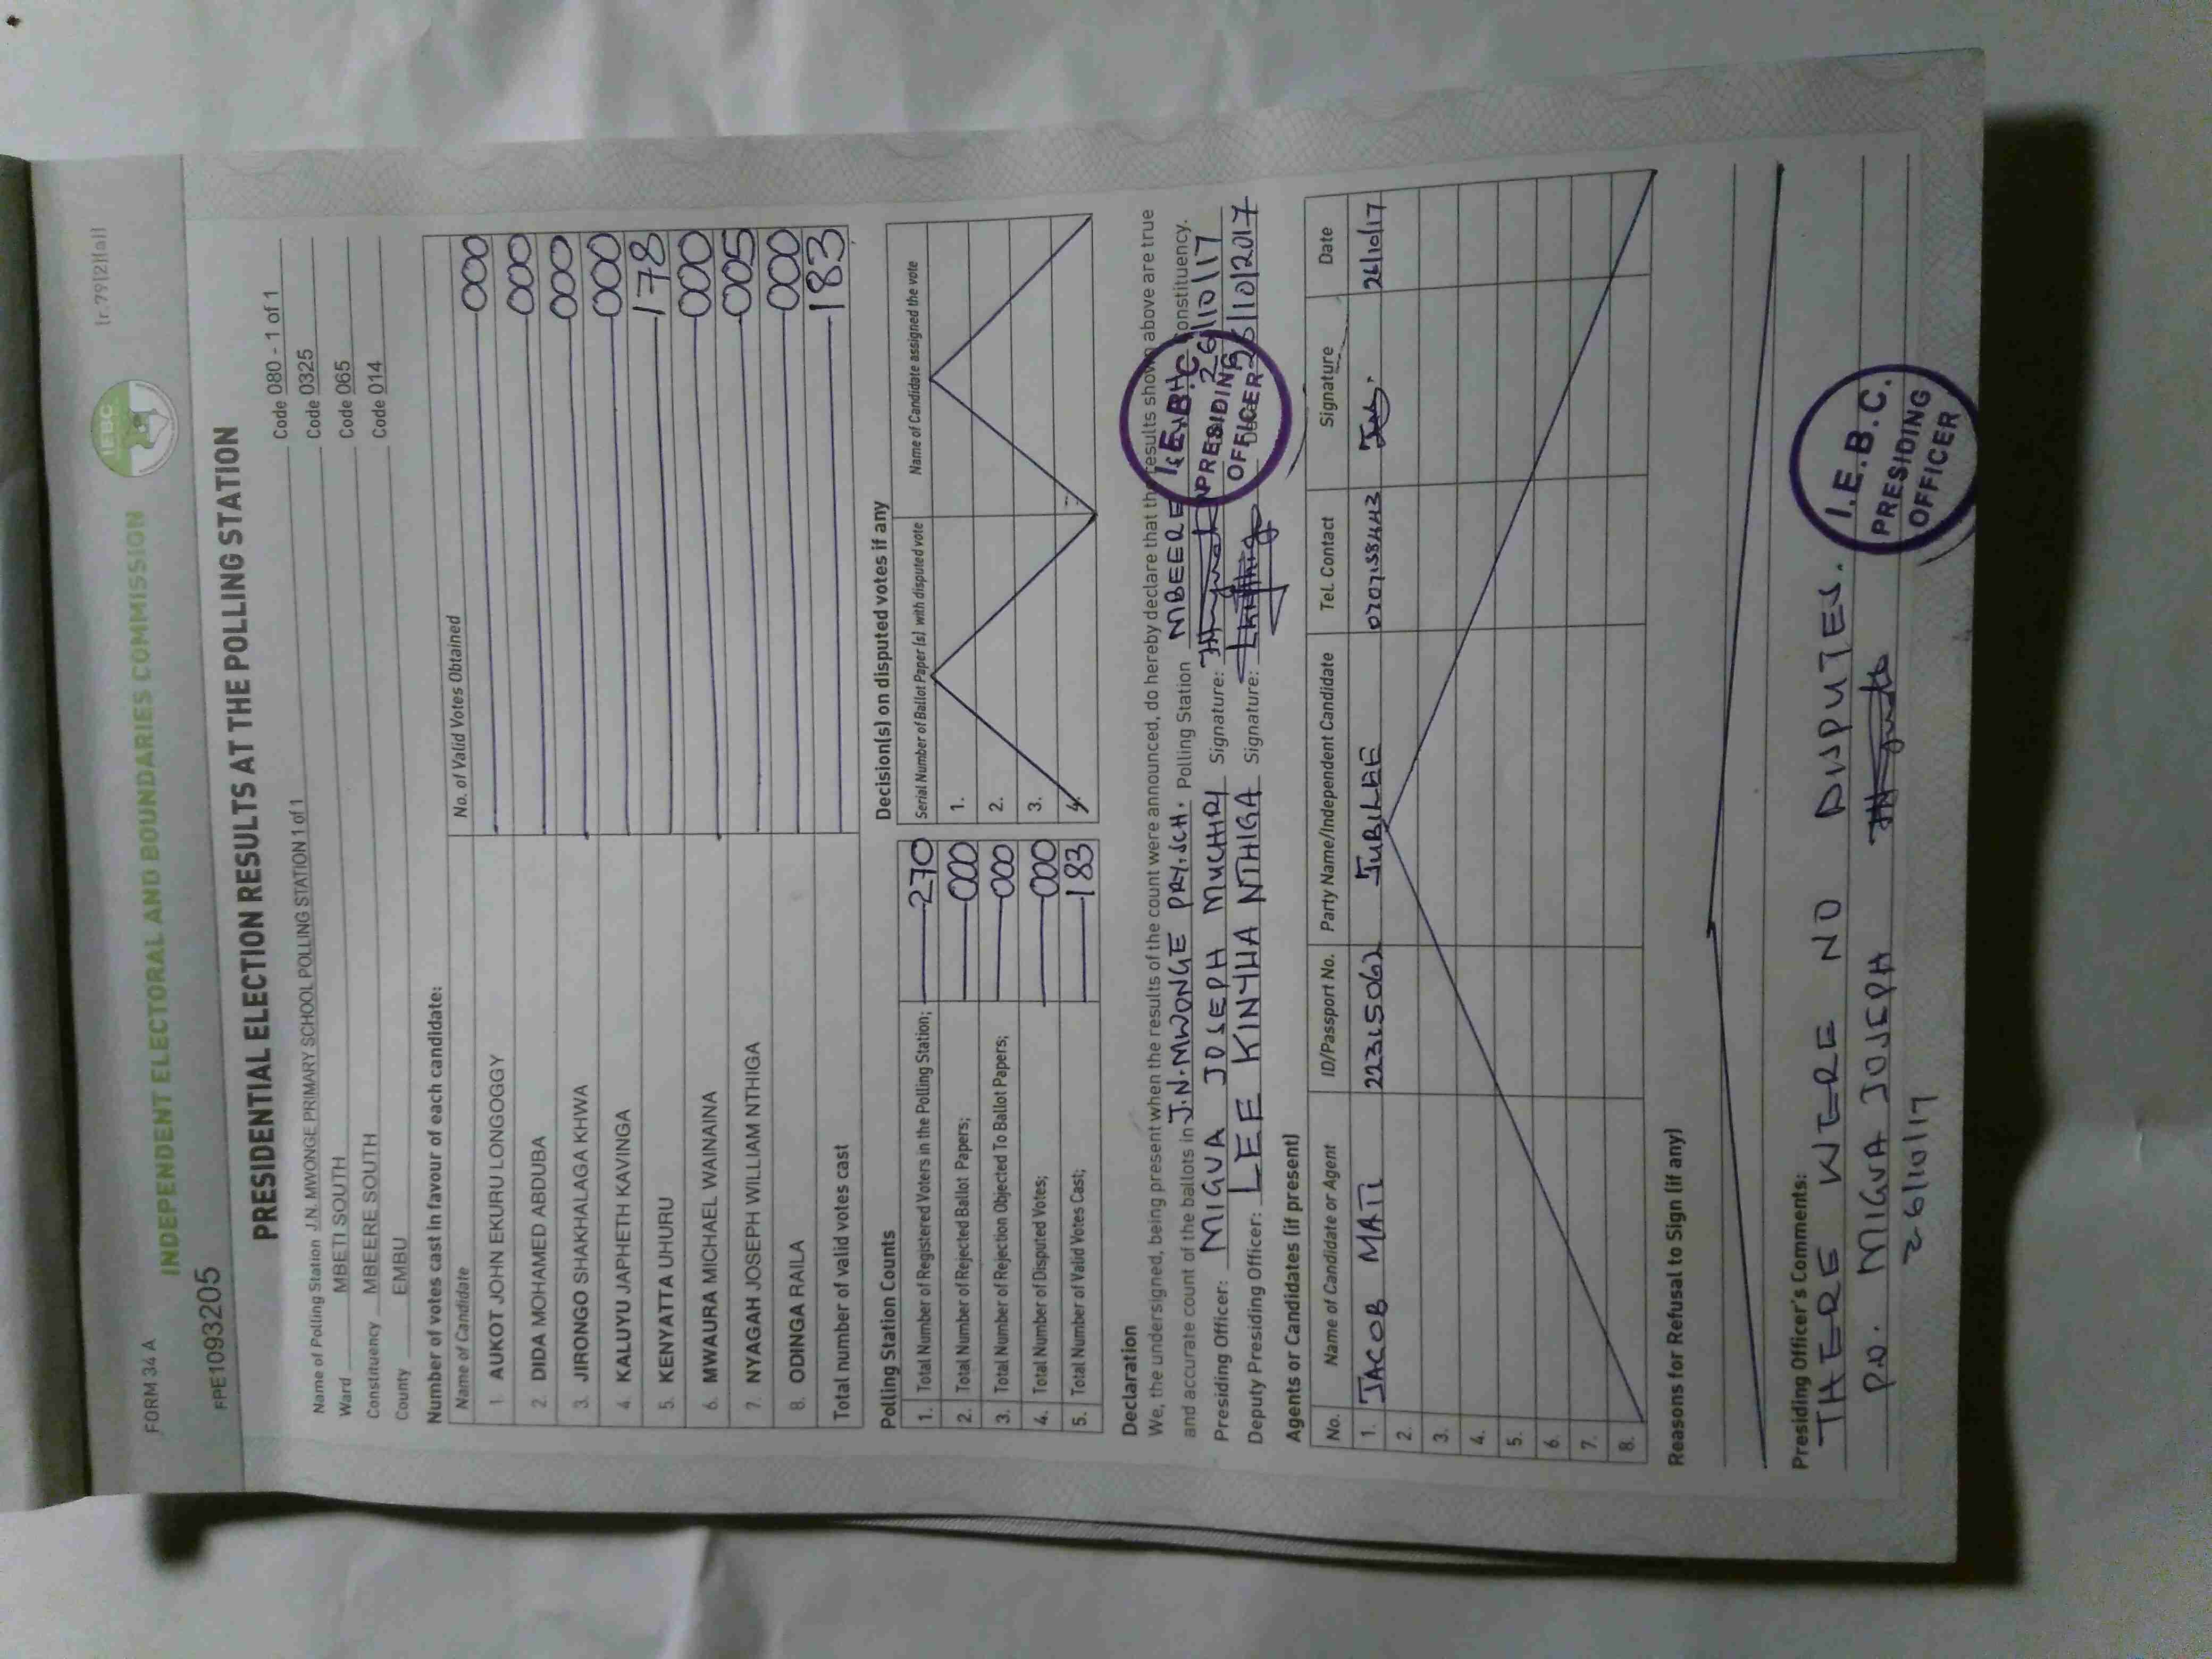 FORM 34 A
(r.79(2)(a))
IEBC
INDEPENDENT ELECTORAL AND BOUNDARIES COMMISSION
FPE1093205
PRESIDENTIAL ELECTION RESULTS AT THE POLLING STATION
Name of Polling Station J.N. MWONGE PRIMARY SCHOOL POLLING STATION 1 of 1 Code 080 - 1 of 1
Ward MBETI SOUTH Code 0325
Constituency MBEERE SOUTH Code 065
County EMBU Code 014
Number of votes cast in favour of each candidate:
Name of Candidate No. of Valid Votes Obtained
1. AUKOT JOHN EKURU LONGOGGY 000
2. DIDA MOHAMED ABDUBA 000
3. JIRONGO SHAKHALAGA KHWA 000
4. KALUYU JAPHETH KAVINGA 000
5. KENYATTA UHURU 178
6. MWAURA MICHAEL WAINAINA 000
7. NYAGAH JOSEPH WILLIAM NTHIGA 005
8. ODINGA RAILA 000
Total number of valid votes cast 183
Polling Station Counts
1. Total Number of Registered Voters in the Polling Station; 270
2. Total Number of Rejected Ballot Papers; 000
3. Total Number of Rejection Objected To Ballot Papers; 000
4. Total Number of Disputed Votes; 000
5. Total Number of Valid Votes Cast; 183
Decision(s) on disputed votes if any
Serial Number of Ballot Paper (s) with disputed vote Name of Candidate assigned the vote
1.
2.
3.
4.
Declaration
We, the undersigned, being present when the results of the count were announced, do hereby declare that the results shown above are true
and accurate count of the ballots in J.N. MWONGE PRY. SCH. Polling Station MBEERE Constituency.
Presiding Officer: MIGUA JOSEPH MUCHIRI Signature: 26/10/17
Deputy Presiding Officer: LEE KINYHA NTHIGA Signature: 26/10/2017
I.E.B.C.
PRESIDING
OFFICER
Agents or Candidates (if present)
No. Name of Candidate or Agent ID/Passport No. Party Name/Independent Candidate Tel. Contact Signature Date
1. JACOB MATI JUBILEE 26/10/17
2.
3.
4.
5.
6.
7.
8.
Reasons for Refusal to Sign (if any)
Presiding Officer's Comments:
THERE WERE NO DISPUTES.
P.O. MIGUA JOSEPH
26/10/17
I.E.B.C.
PRESIDING
OFFICER